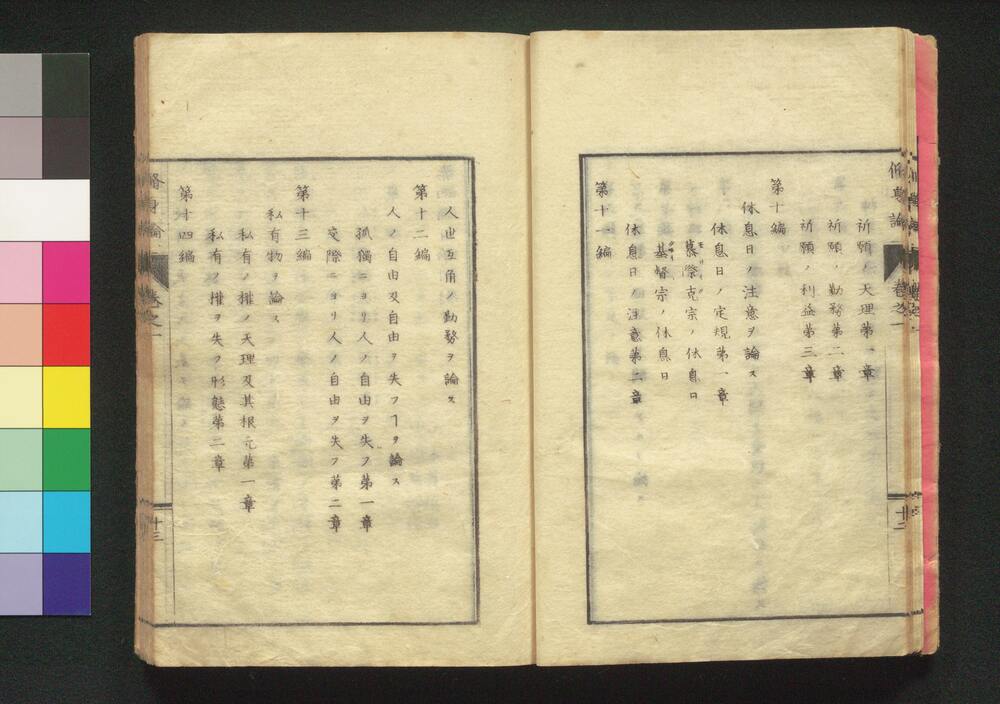 祈願ノ天理第一章
祈願ノ勤務第二章
祈願ノ利益第三章
第十編
休息日ノ注意ヲ論ス
休息日ノ定規第一章
慕際克宗ノ休息日
基督宗ノ休息日
休息日ノ注意第二章
第十一編
人世互角ノ勤務ヲ論ス
第十二編
人ノ自由及自由ヲ失フヿヲ論ス
孤獨ニヨリ人ノ自由ヲ失フ第一章
交際ニヨリ人ノ自由ヲ失フ第二章
第十三編
私有物ヲ論ス
私有ノ權ノ天理及其根元第一章
私有ノ權ヲ失フ形態第二章
第十四編
脩身論
卷之一
十三